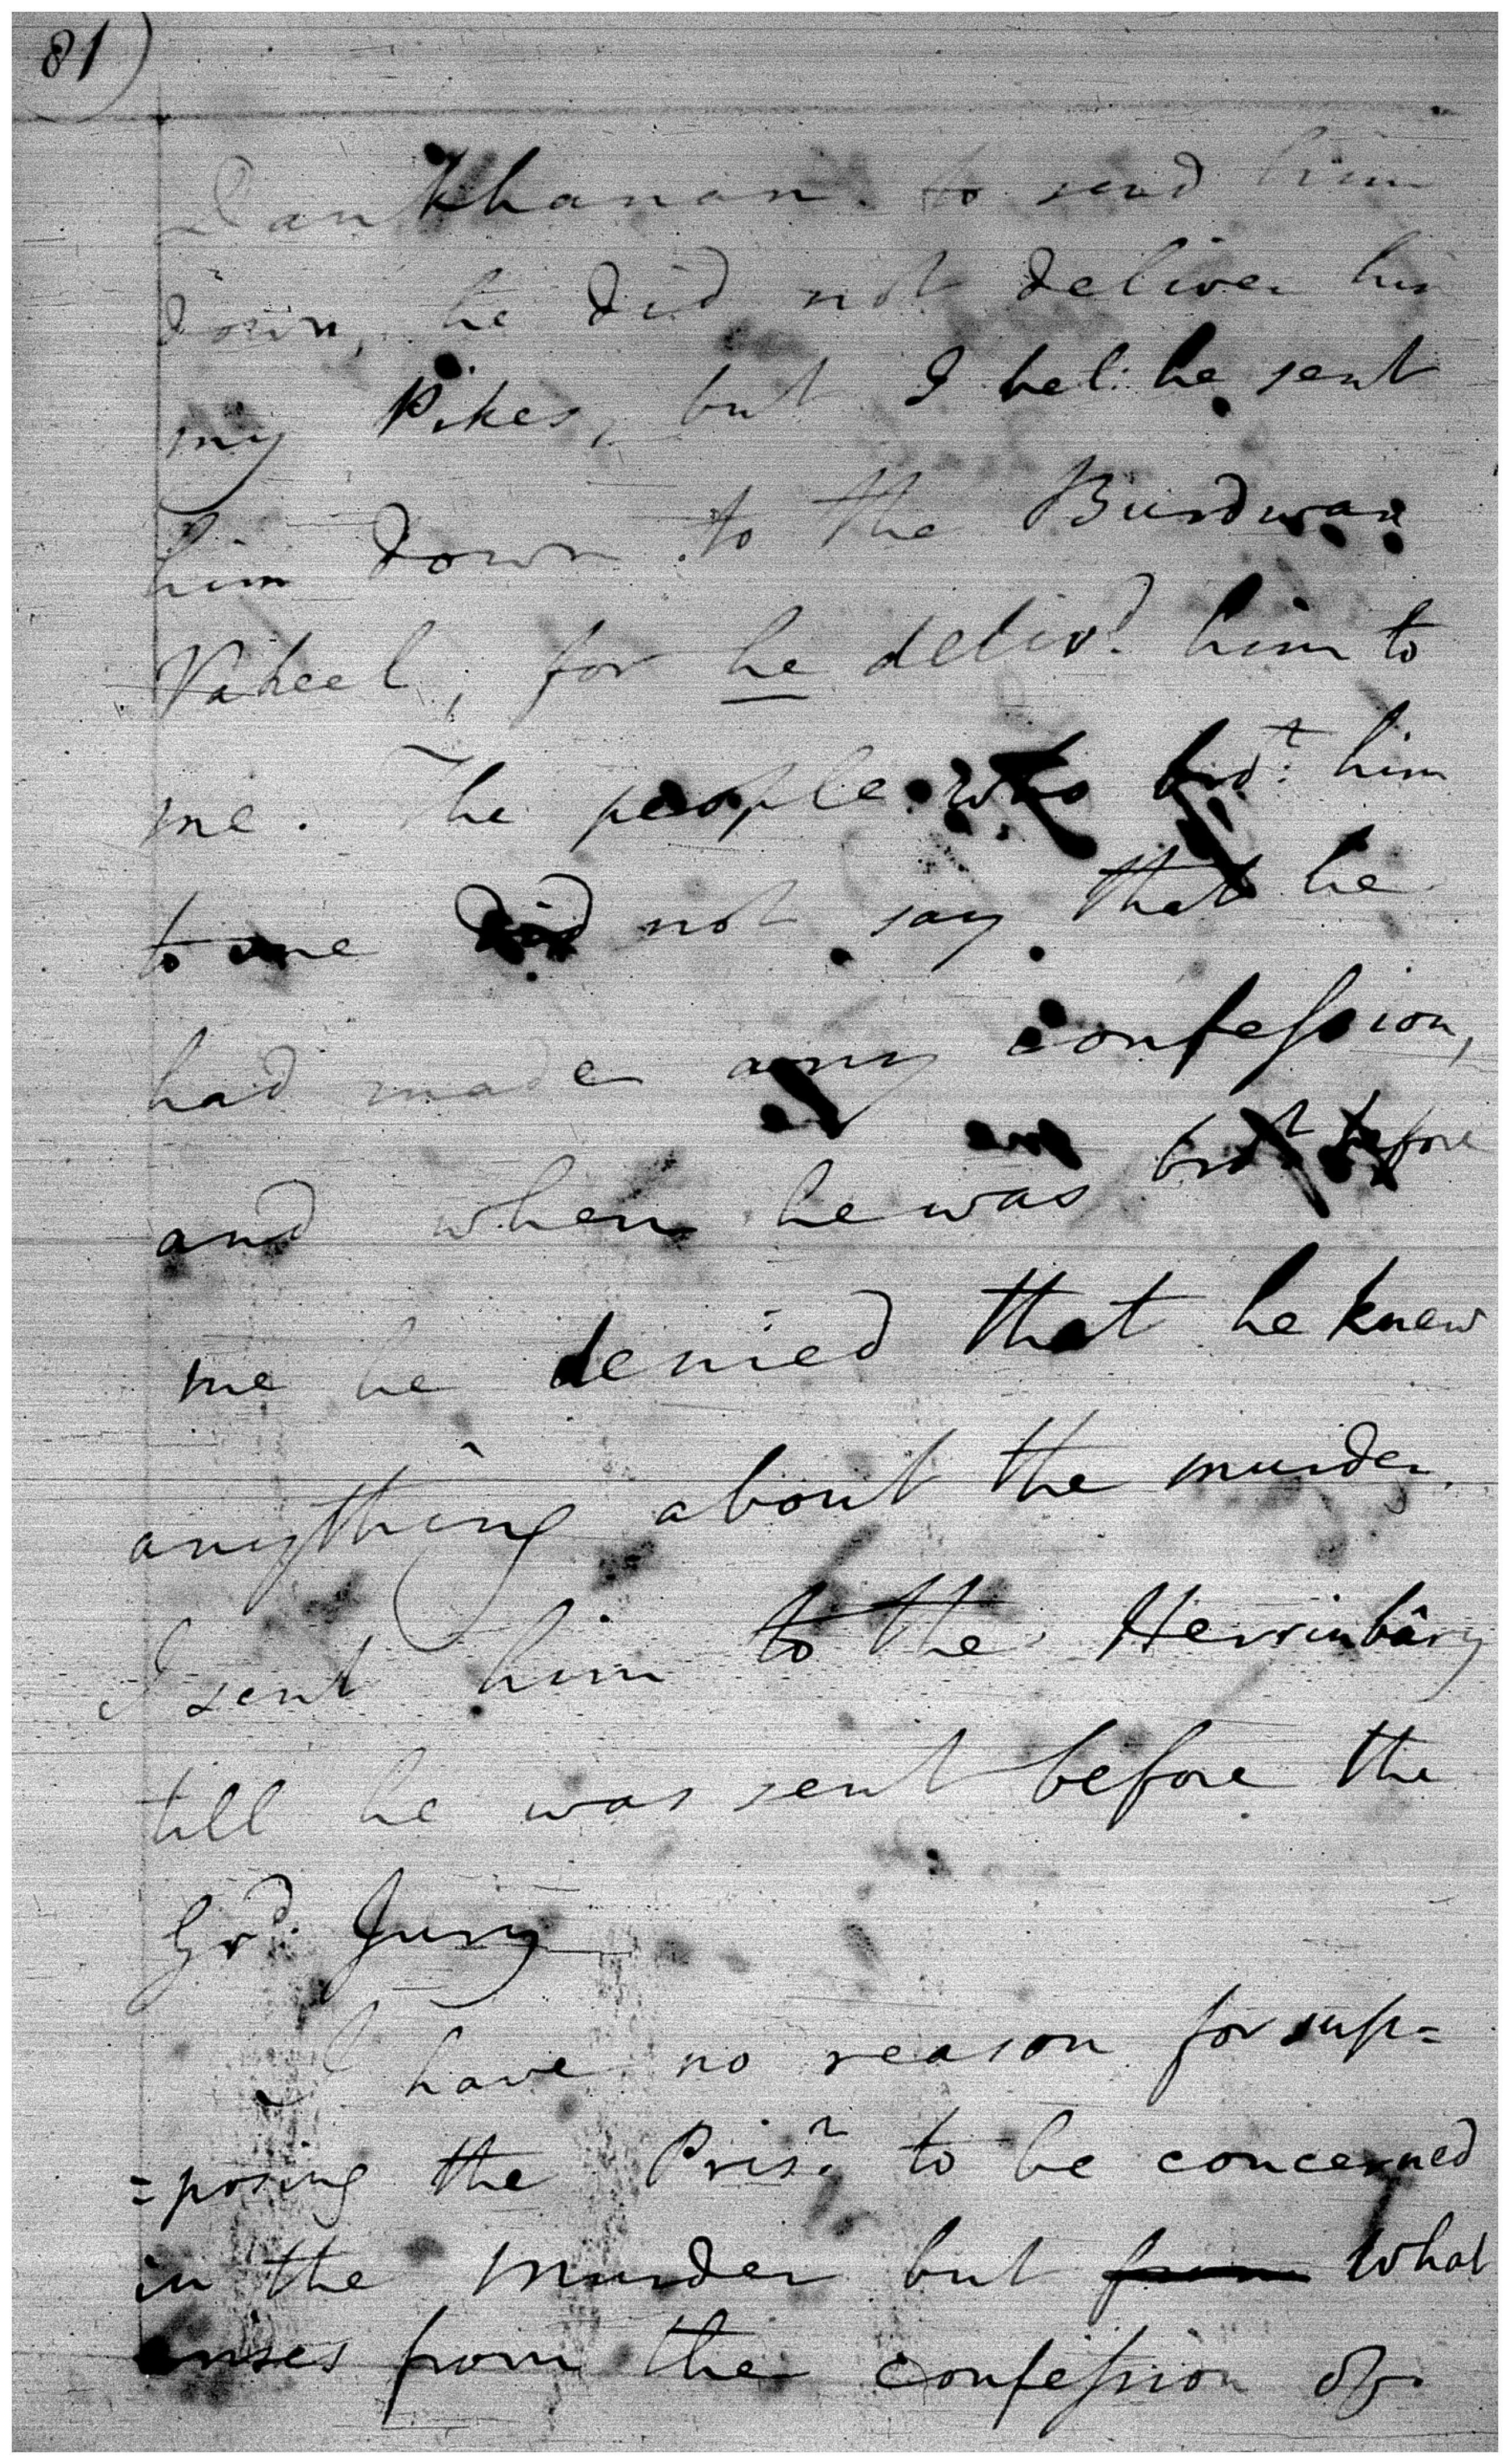 81)
Khanan to send him
down, he did not deliver him
my Pikes, but I bel: he sent
him down to the Burdwan
Vakeel, for he deliv.d him to
me. The people who bro.t him
to me did not say that he
had made any confession,
and when he was bro.t before
me he denied that he knew
anything about the murder.
I sent him to the Herrinbâry
till he was sent before the
Gr.d Jury
I have no reason for sup=
=posing the Pris.r to be concerned
in the murder but what
arises from the confession of